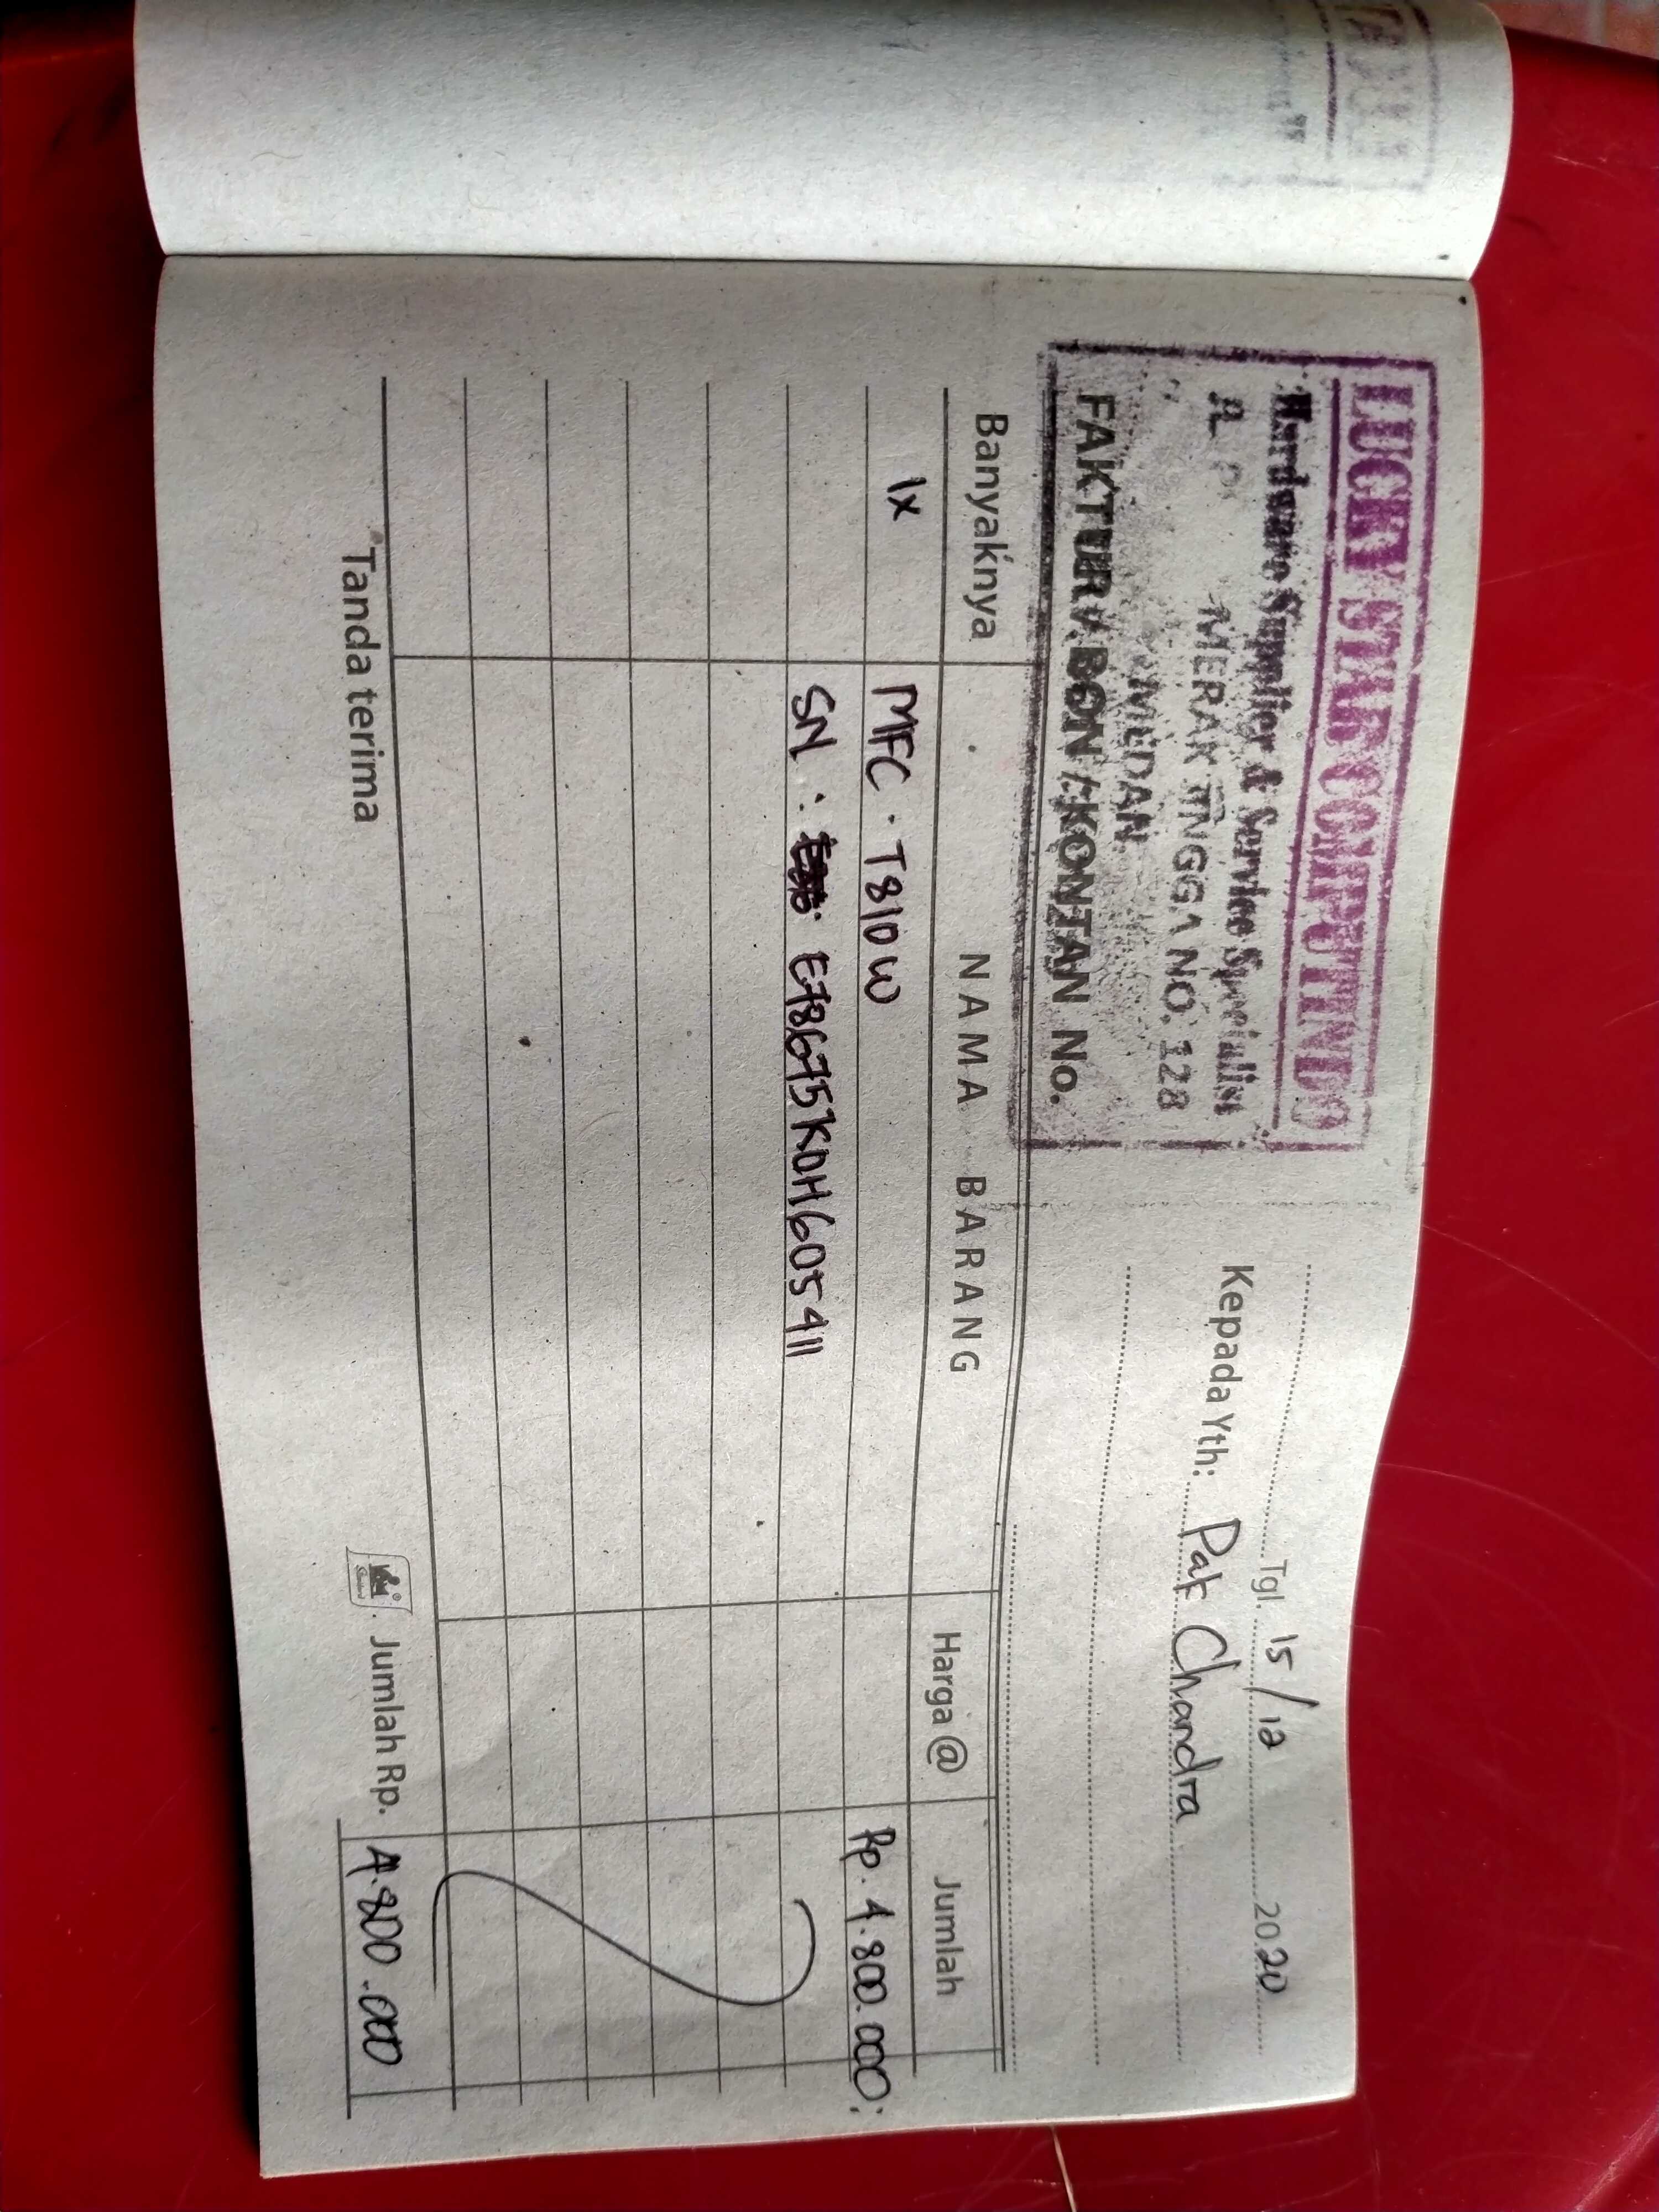 LUCKY STAR COMPUTINDO
Hardware Supplier & Service Specialist
MERAK JINGGA NO. 128
MEDAN
FAKTUR / BON / KONTAN No.
Tgl. 15/12 2020
Kepada Yth: Pak Chandra
Banyaknya NAMA BARANG Harga @ Jumlah
1x MFC - T810W Rp. 4.800.000;
SN : E78675K0H605411
Tanda terima Jumlah Rp. 4.800.000